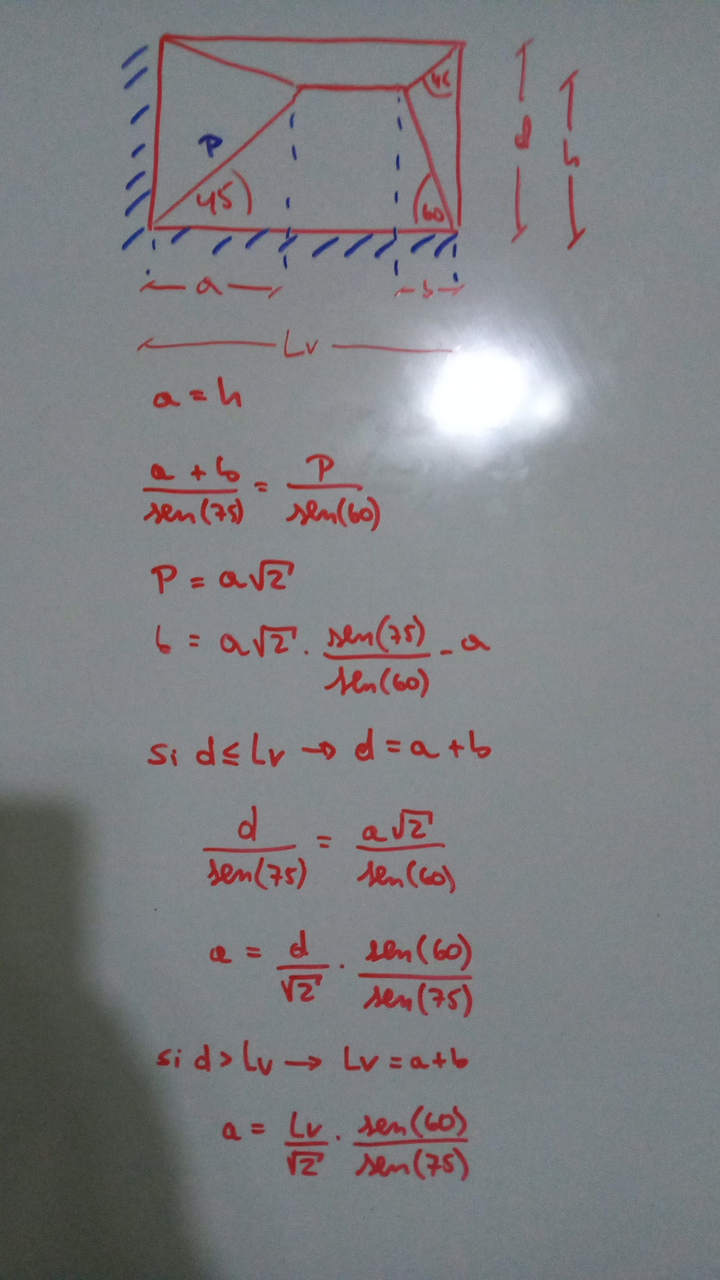 45
P
45
60
d
h
a
b
Lv
a = h
a + b / sen(75) = P / sen(60)
P = a√2
b = a√2 · sen(75) / sen(60) - a
si d ≤ Lv → d = a + b
d / sen(75) = a√2 / sen(60)
a = d / √2 · sen(60) / sen(75)
si d > Lv → Lv = a + b
a = Lv / √2 · sen(60) / sen(75)